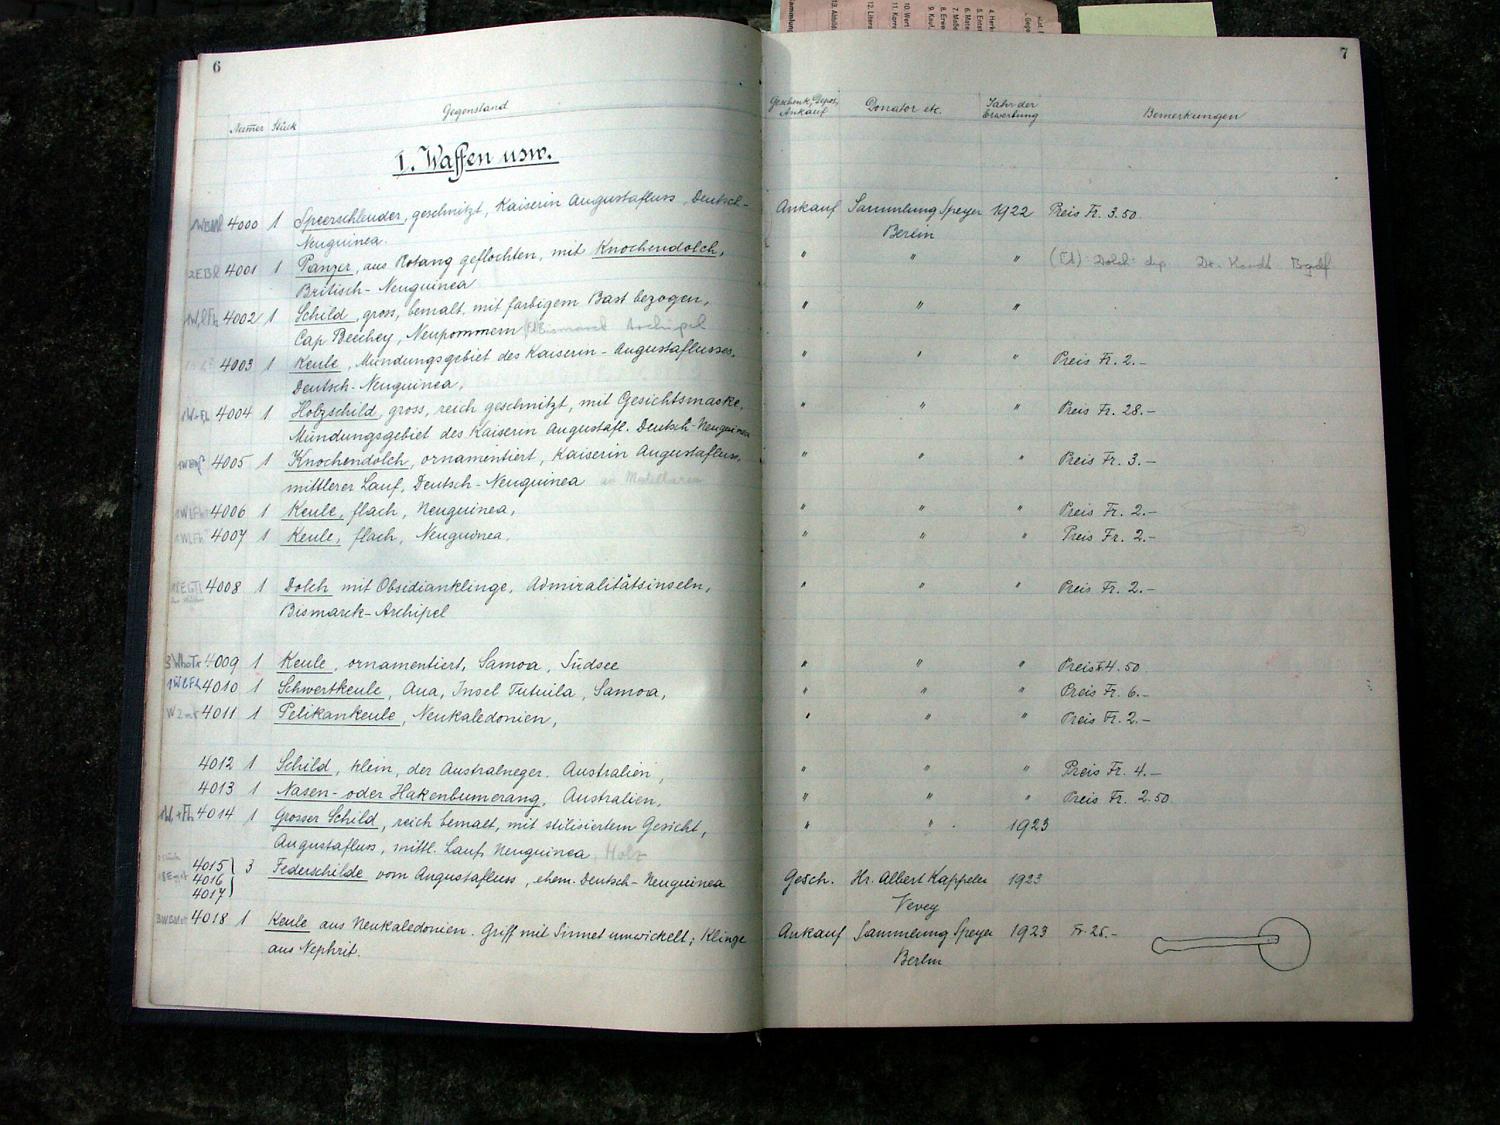 6
Numer Stück
Gegenstand
I. Waffen usw.
4000 1 Speerschleuder, geschnitzt, Kaiserin Augustafluss, Deutsch-
Neuguinea.
4001 1 Panzer, aus Rotang geflochten, mit Knochendolch,
Britisch-Neuguinea
4002 1 Schild, gross, bemalt, mit farbigem Bast bezogen,
Cap Beechey, Neupommern Bismarck Archipel
4003 1 Keule, Mündungsgebiet des Kaiserin-Augustaflusses,
Deutsch-Neuguinea,
4004 1 Holzschild, gross, reich geschnitzt, mit Gesichtsmaske,
Mündungsgebiet des Kaiserin Augustafl. Deutsch-Neuguinea
4005 1 Knochendolch, ornamentiert, Kaiserin Augustafluss,
mittlerer Lauf, Deutsch-Neuguinea
4006 1 Keule, flach, Neuguinea,
4007 1 Keule, flach, Neuguinea,
4008 1 Dolch mit Obsidianklinge, Admiralitätsinseln,
Bismarck-Archipel
4009 1 Keule, ornamentiert, Samoa, Südsee
4010 1 Schwertkeule, Aua, Insel Tutuila, Samoa,
4011 1 Pelikankeule, Neukaledonien,
4012 1 Schild, klein, der Australneger. Australien,
4013 1 Nasen- oder Hakenbumerang, Australien,
4014 1 Grosser Schild, reich bemalt, mit stilisiertem Gesicht,
Augustafluss, mittl. Lauf, Neuguinea Holz
4015 3 Federschilde vom Augustafluss, ehem. Deutsch-Neuguinea
4016
4017
4018 1 Keule aus Neukaledonien. Griff mit Sinnet umwickelt; Klinge
aus Nephrit.
7
Geschenk, Depos,
Ankauf
Donator etc.
Jahr der
Erwerbung
Bemerkungen
Ankauf Sammlung Speyer 1922 Preis Fr. 3.50
Berlin
" " " Dolch Dr.
" " "
" " " Preis Fr. 2.-
" " " Preis Fr. 28.-
" " " Preis Fr. 3.-
" " " Preis Fr. 2.-
" " " Preis Fr. 2.-
" " " Preis Fr. 2.-
" " " Preis Fr. 4.50
" " " Preis Fr. 6.-
" " " Preis Fr. 2.-
" " " Preis Fr. 4.-
" " " Preis Fr. 2.50
" " 1923
Gesch. Hr. Albert Kappeler 1923
Vevey
Ankauf Sammlung Speyer 1923 Fr. 25.-
Berlin